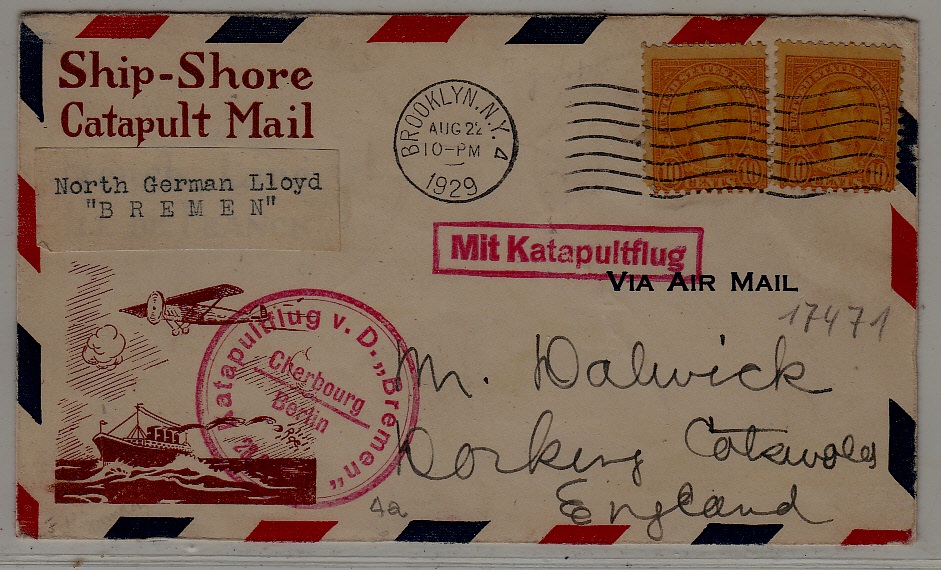 Ship-Shore
Catapult Mail
North German Lloyd
"B R E M E N"
BROOKLYN. N.Y. 4
AUG 22
10-PM
1929
UNITED STATES
10 CENTS 10
UNITED STATES
10 10
Mit Katapultflug
VIA AIR MAIL
17471
Katapultflug v. D. „Bremen"
Cherbourg
Berlin
Mr. Dalwick
Dorking Cotswolds
England
4a